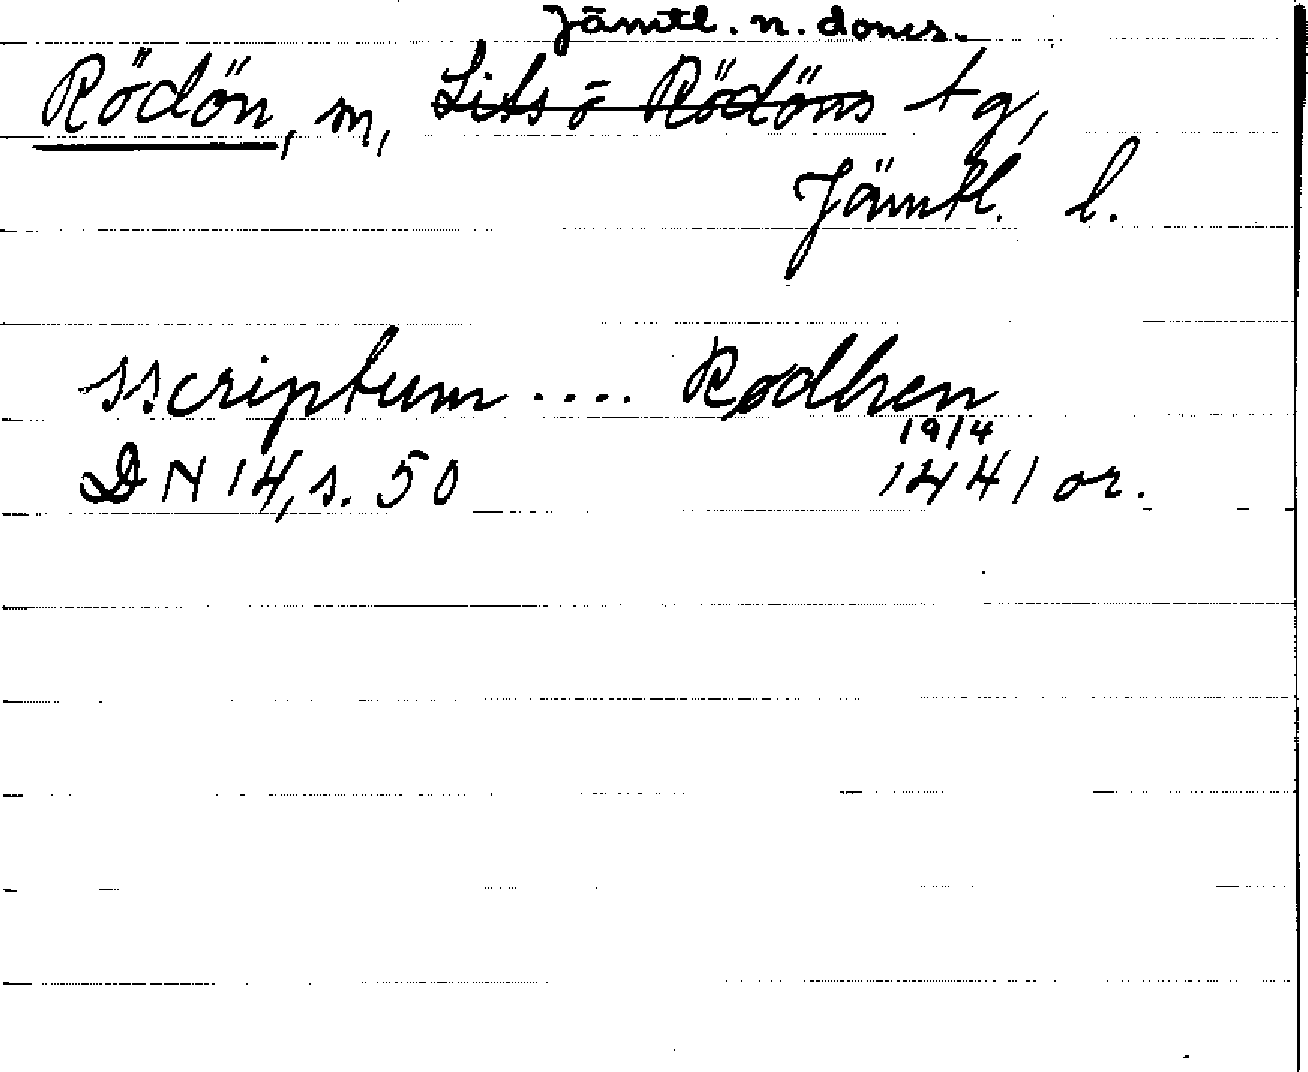 Jämtl. n. doms.
Rödön, sn, Lits o Rödöns tg,
Jämtl. l.
sscriptum .... Rødhen
19/4
DN 14, s. 50 1441 or.